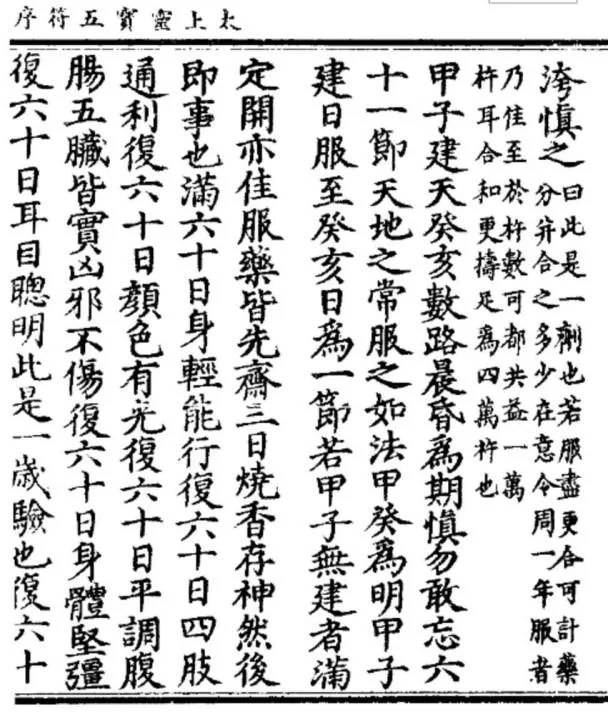 太上靈寶五符序
洿慎之
曰此是一劑也若服盡更合可計藥
分并合之多少在意令周一年服者
乃佳至於杵數可都共益一萬
杵耳合和更擣足爲四萬杵也
甲子建天癸亥數路晨昏爲期慎勿敢忘六
十一節天地之常服之如法甲癸爲明甲子
建日服至癸亥日爲一節若甲子無建者滿
定開亦佳服藥皆先齋三日燒香存神然後
即事也滿六十日身輕能行復六十日四肢
通利復六十日顏色有光復六十日平調腹
腸五臟皆實凶邪不傷復六十日身體堅彊
復六十日耳目聰明此是一歲驗也復六十